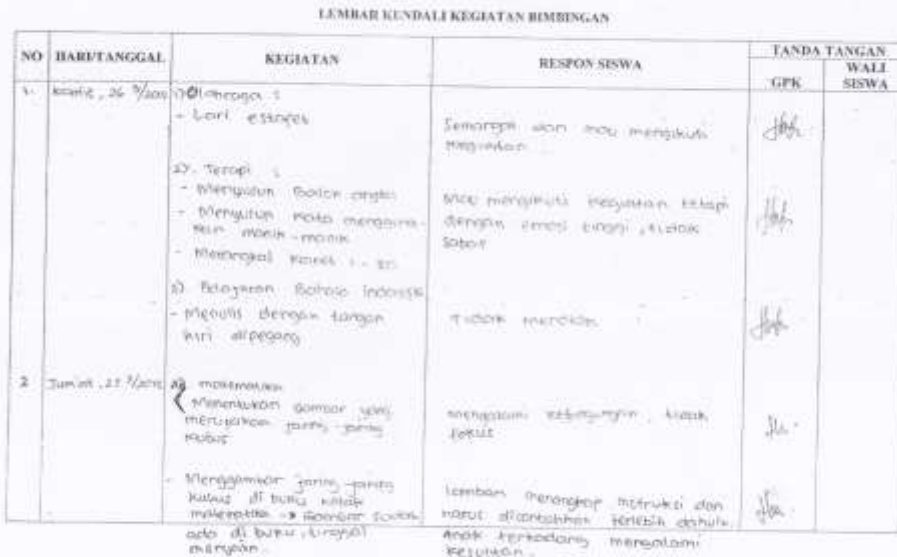 LEMBAR KENDALI KEGIATAN BIMBINGAN
NO HARI/TANGGAL KEGIATAN RESPON SISWA TANDA TANGAN
GPK WALI SISWA
1. Kamis, 26 1) Olahraga :
- Lari estafet
Semangat dan mau mengikuti
kegiatan
2). Terapi :
- Menyusun Balok angka
- Menyusun kata menggunakan
manik-manik
- Merangkai
Mau mengikuti kegiatan tetapi
dengan emosi tinggi, tidak
sabar
3) Pelajaran Bahasa Indonesia
- Menulis dengan tangan
kiri dipegang
Tidak menolak
2 Jum'at, 27 matematika
Menentukan gambar yang
merupakan jaring-jaring
kubus
mengalami kebingungan, tidak
fokus
- Menggambar jaring-jaring
kubus di buku kotak
matematika → Gambar sudah
ada di buku, tinggal
menyalin.
Lamban menangkap instruksi dan
harus dicontohkan terlebih dahulu
Anak terkadang mengalami
kesulitan.